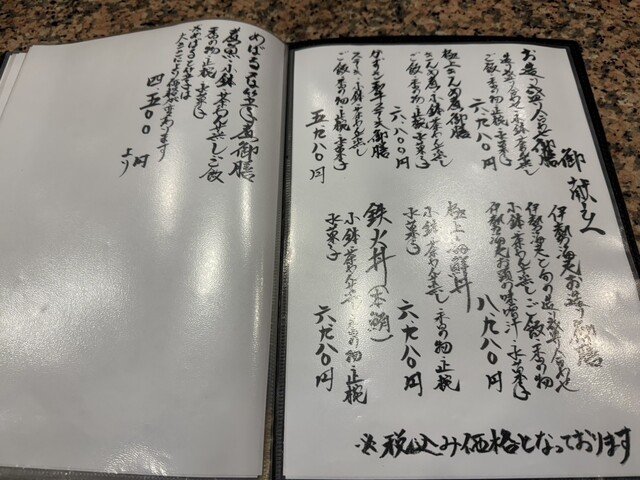 御献立
お造り盛り合わせ御膳
造り盛り合わせ・小鉢・茶わん蒸し
ご飯・香の物・止椀・水菓子
六・九八〇円
極上きんめ煮御膳
きんめ煮・小鉢・茶わん蒸し
ご飯・香の物・止椀・水菓子
六・八〇〇円
牛ステーキ御膳
ステーキ・小鉢・茶わん蒸し
ご飯・香の物・止椀・水菓子
五・九八〇円
伊勢海老お造り御膳
伊勢海老と旬の造り盛り合わせ
小鉢・茶わん蒸し・ご飯・香の物
伊勢海老お頭の味噌汁・水菓子
八・九八〇円
極上海鮮丼
小鉢・茶わん蒸し・香の物・止椀
水菓子
六・九八〇円
鉄火丼（本鮪）
小鉢・茶わん蒸し・香の物・止椀
水菓子
六・九八〇円
※税込み価格となっております
めばる姿煮御膳
煮魚・小鉢・茶わん蒸し・ご飯
香の物・止椀・水菓子
大きさにより価格が変わります
四・五〇〇円より